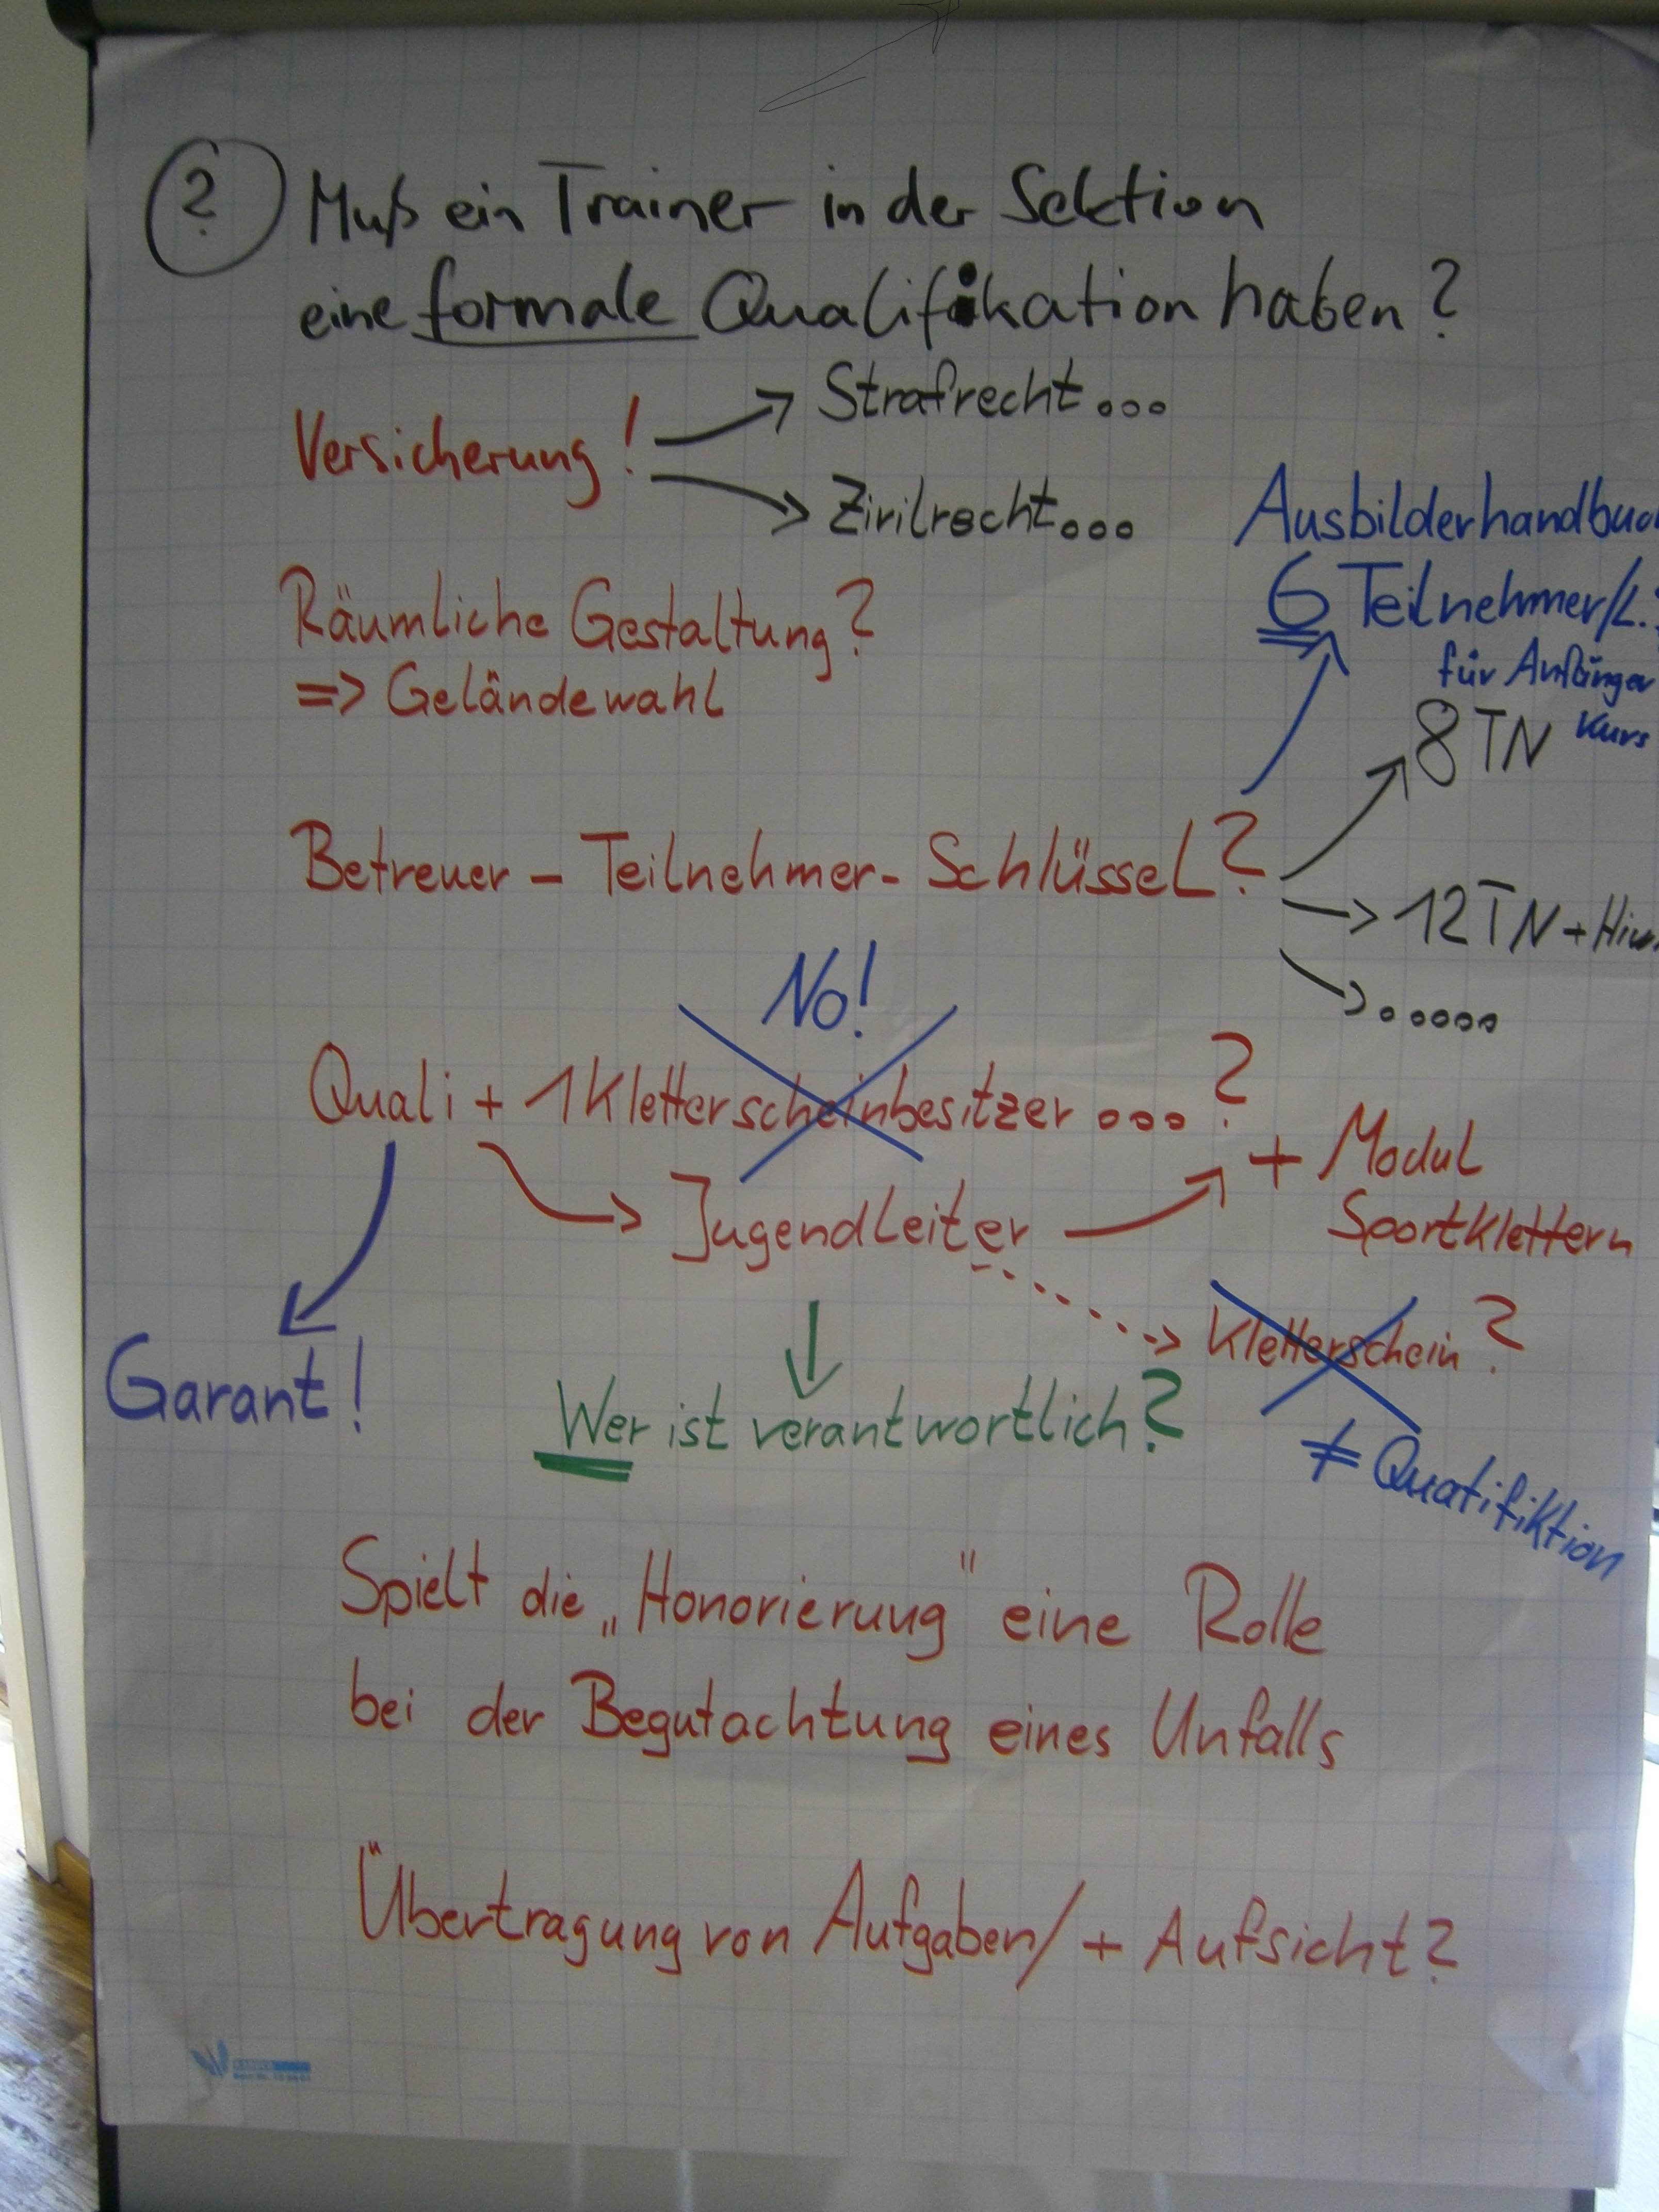 ? Muß ein Trainer in der Sektion
eine formale Qualifikation haben?
Versicherung! → Strafrecht...
→ Zivilrecht...
Ausbilderhandbuc
6 Teilnehmer/L.
für Anfänger
Kurs
Räumliche Gestaltung?
=> Geländewahl
8 TN
Betreuer - Teilnehmer - Schlüssel?
→ 12 TN +
→ ......
No!
Quali + 1 Kletterscheinbesitzer ...?
→ Jugendleiter → + Modul
Sportklettern
Kletterschein?
Garant!
Wer ist verantwortlich?
≠ Qualifiktion
Spielt die „Honorierung" eine Rolle
bei der Begutachtung eines Unfalls
Übertragung von Aufgaben/ + Aufsicht?